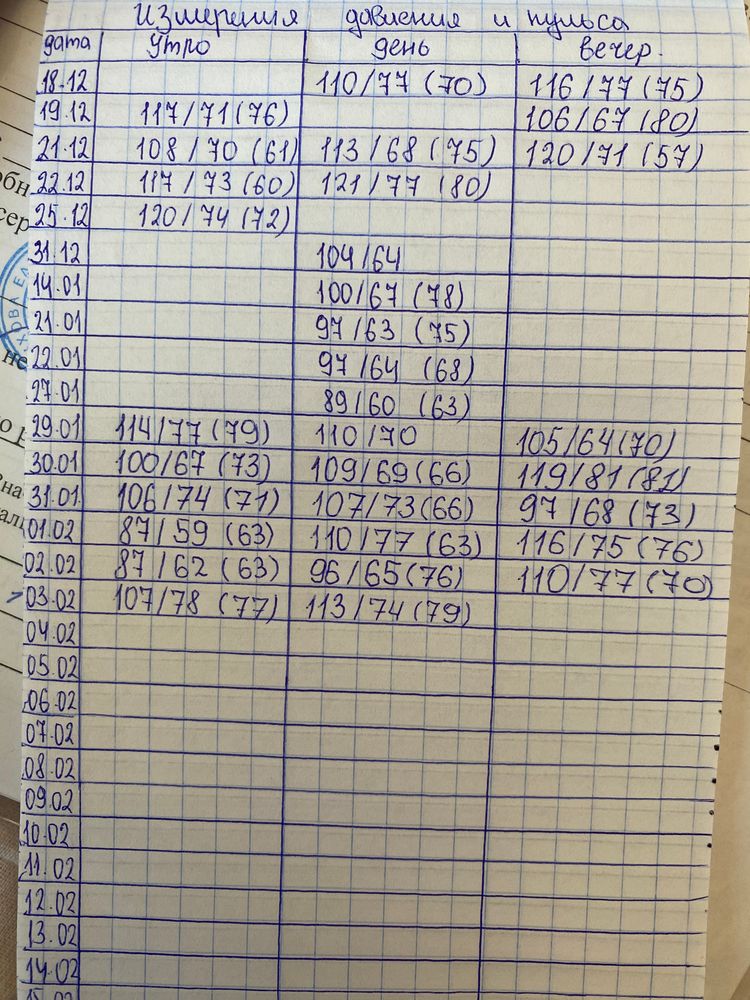 Измерения давления и пульса
дата утро день вечер.
18.12 110/77 (70) 116/77 (75)
19.12 117/71 (76) 106/67 (80)
21.12 108/70 (61) 113/68 (75) 120/71 (57)
22.12 117/73 (60) 121/77 (80)
25.12 120/74 (72)
31.12 104/64
14.01 100/67 (78)
21.01 97/63 (75)
22.01 97/64 (68)
27.01 89/60 (63)
29.01 114/77 (79) 110/70 105/64 (70)
30.01 100/67 (73) 109/69 (66) 119/81 (81)
31.01 106/74 (71) 107/73 (66) 97/68 (73)
01.02 87/59 (63) 110/77 (63) 116/75 (76)
02.02 87/62 (63) 96/65 (76) 110/77 (70)
03.02 107/78 (77) 113/74 (79)
04.02
05.02
06.02
07.02
08.02
09.02
10.02
11.02
12.02
13.02
14.02